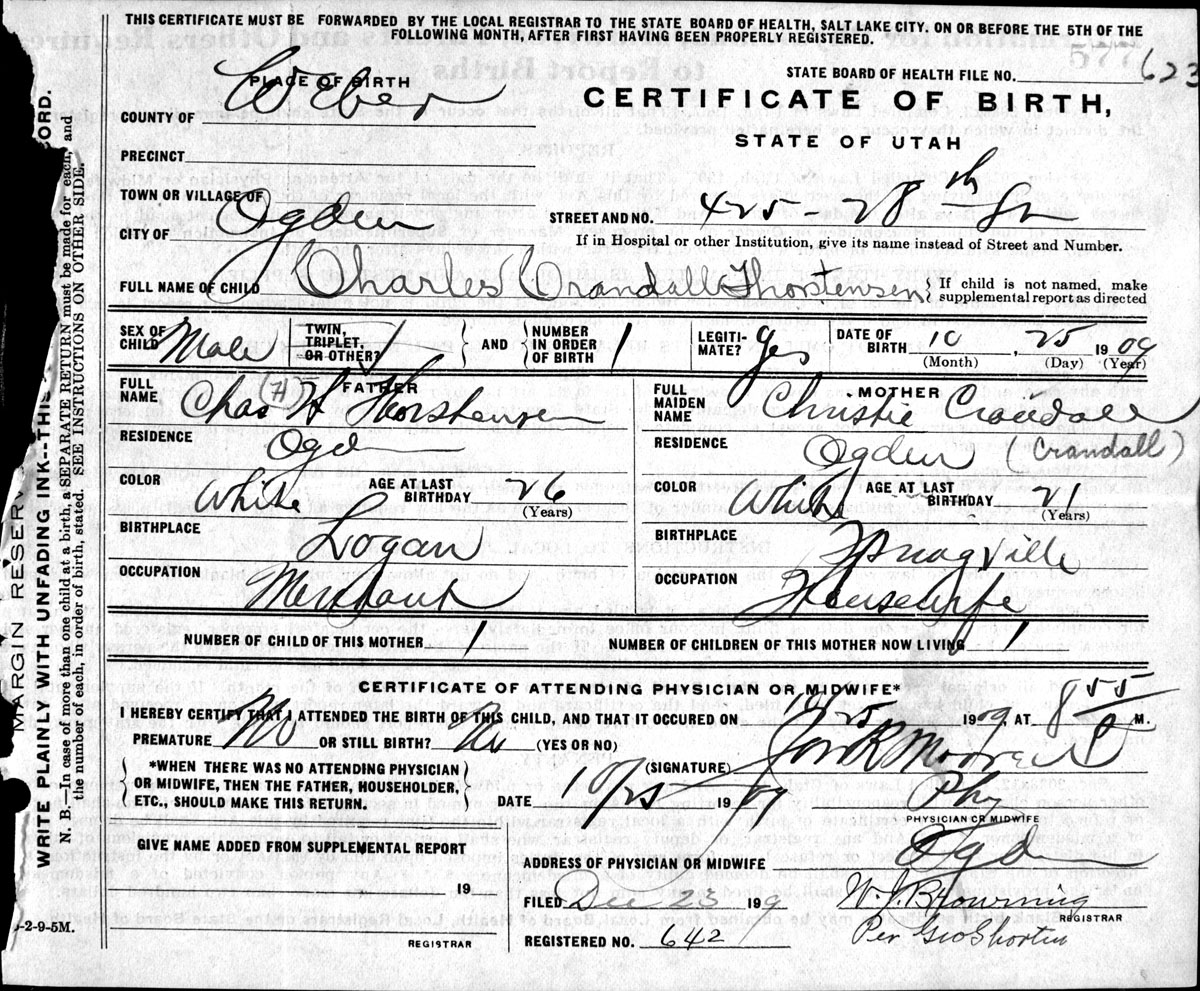 THIS CERTIFICATE MUST BE FORWARDED BY THE LOCAL REGISTRAR TO THE STATE BOARD OF HEALTH, SALT LAKE CITY. ON OR BEFORE THE 5TH OF THE
FOLLOWING MONTH, AFTER FIRST HAVING BEEN PROPERLY REGISTERED.
PLACE OF BIRTH
STATE BOARD OF HEALTH FILE NO. 623
COUNTY OF Weber
CERTIFICATE OF BIRTH,
STATE OF UTAH
PRECINCT
TOWN OR VILLAGE OF
CITY OF Ogden
STREET AND NO. 425 28th St
If in Hospital or other Institution, give its name instead of Street and Number.
FULL NAME OF CHILD Charles Crandall Thorstensen
If child is not named, make
supplemental report as directed
SEX OF CHILD Male TWIN, TRIPLET, OR OTHER? 1 AND NUMBER IN ORDER OF BIRTH 1 LEGITI-MATE? Yes DATE OF BIRTH 10, 25 1909
(Month) (Day) (Year)
FATHER
FULL NAME Chas (H) H Thorstensen
RESIDENCE Ogden
COLOR White AGE AT LAST BIRTHDAY 26 (Years)
BIRTHPLACE Logan
OCCUPATION Merchant
MOTHER
FULL MAIDEN NAME Christie Crandall
RESIDENCE Ogden (Crandall)
COLOR White AGE AT LAST BIRTHDAY 21 (Years)
BIRTHPLACE Springville
OCCUPATION Housewife
NUMBER OF CHILD OF THIS MOTHER 1 NUMBER OF CHILDREN OF THIS MOTHER NOW LIVING 1
CERTIFICATE OF ATTENDING PHYSICIAN OR MIDWIFE*
I HEREBY CERTIFY THAT I ATTENDED THE BIRTH OF THIS CHILD, AND THAT IT OCCURED ON 10/25 1909 AT 8 55 P M.
PREMATURE No OR STILL BIRTH? No (YES OR NO)
*WHEN THERE WAS NO ATTENDING PHYSICIAN
OR MIDWIFE, THEN THE FATHER, HOUSEHOLDER,
ETC., SHOULD MAKE THIS RETURN.
(SIGNATURE)
DATE 10/25 1909 Phy
PHYSICIAN OR MIDWIFE
GIVE NAME ADDED FROM SUPPLEMENTAL REPORT
19
REGISTRAR
ADDRESS OF PHYSICIAN OR MIDWIFE Ogden
FILED Dec 23 1909 W. J. Browning
REGISTRAR
REGISTERED NO. 642 Per Geo Shorten
-2-9-5M.
MARGIN RESERV
WRITE PLAINLY WITH UNFADING INK--THIS ORD.
N. B.—In case of more than one child at a birth, a SEPARATE RETURN must be made for each, and
the number of each, in order of birth, stated. SEE INSTRUCTIONS ON OTHER SIDE.